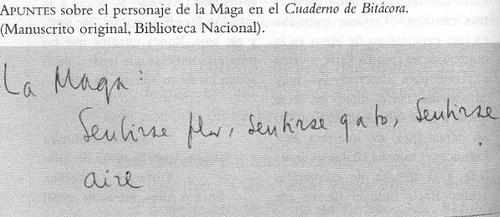 APUNTES sobre el personaje de la Maga en el Cuaderno de Bitácora.
(Manuscrito original, Biblioteca Nacional).
La Maga:
Sentirse flor, sentirse gato, sentirse
aire